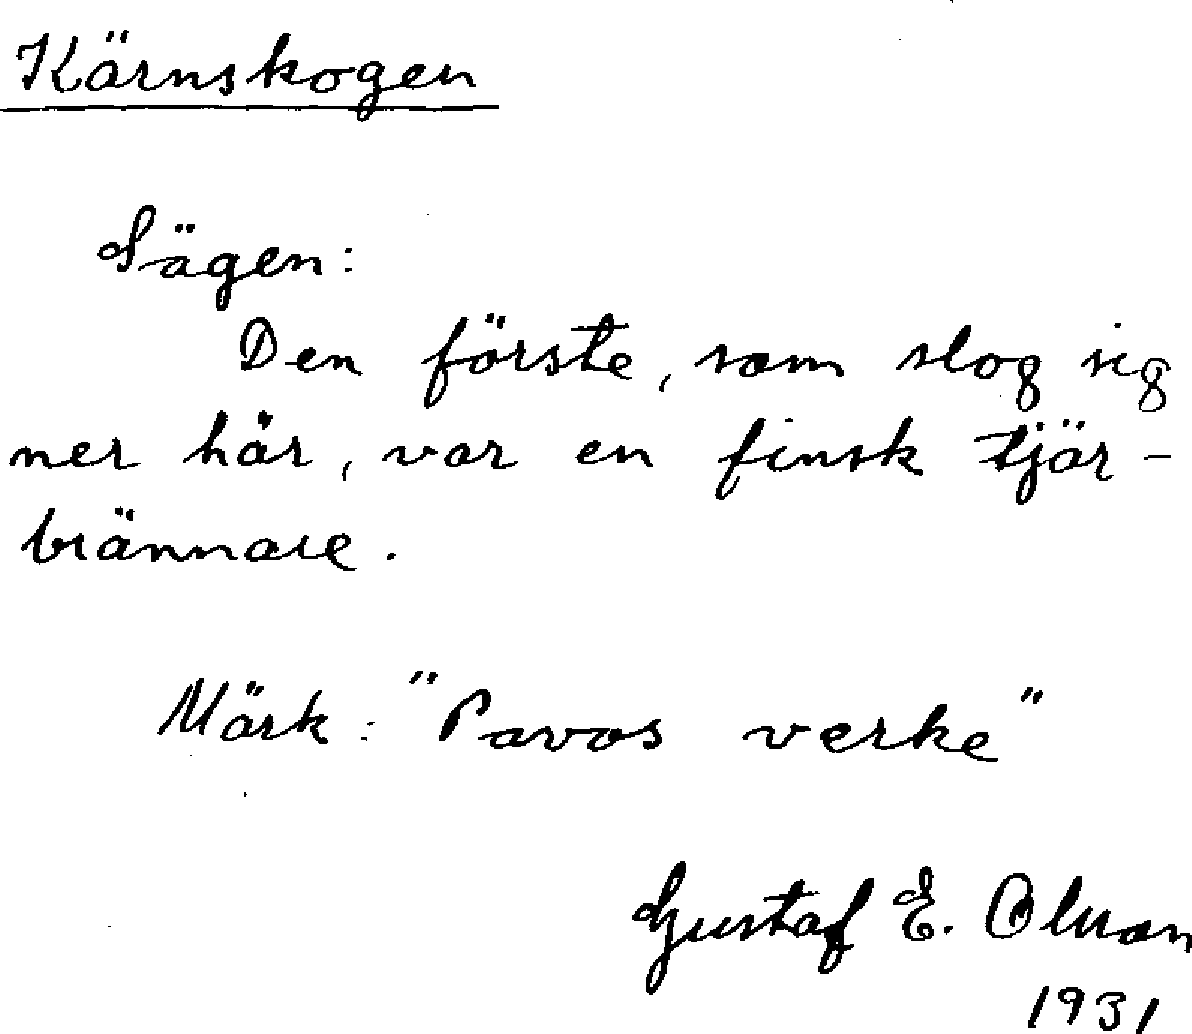 Kärnskogen
Sägen:
Den förste, som slog sig
ner här, var en finsk tjär-
brännare.
Märk: "Pavos verke"
Gustaf E.
1931